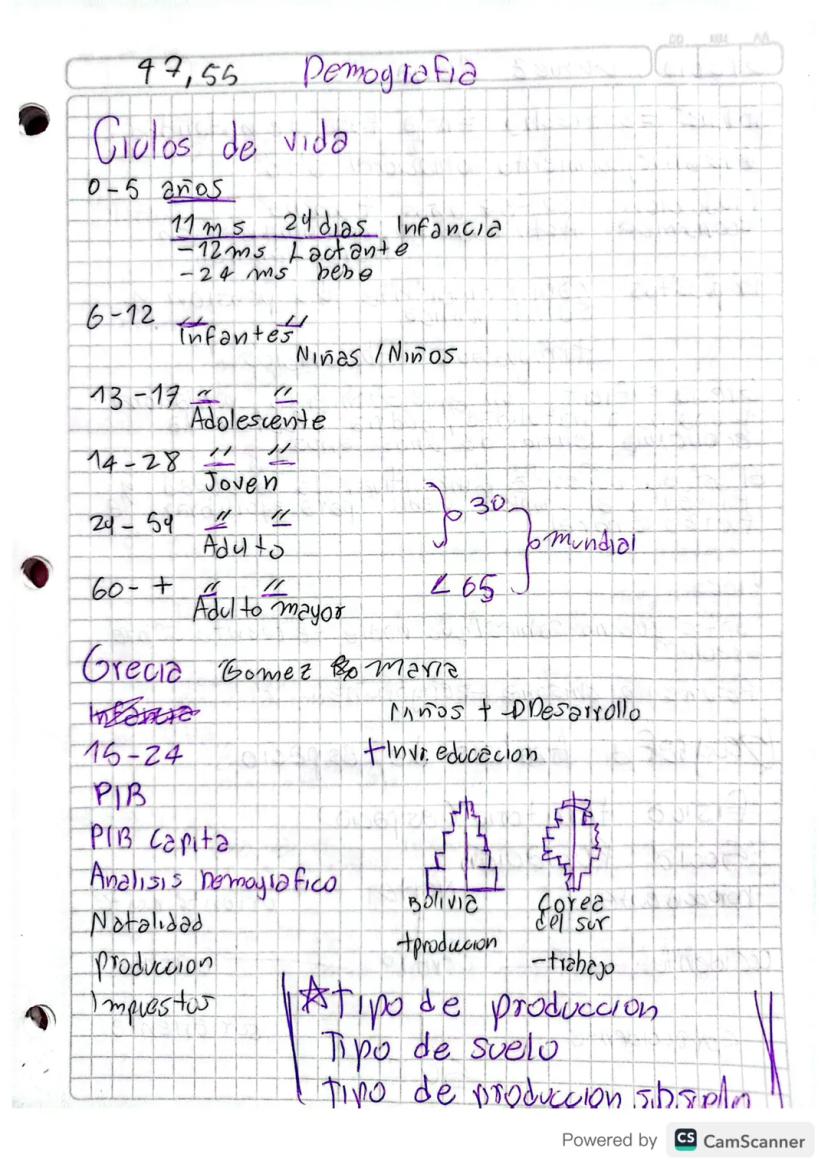 47,55 Demografia
Ciclos de vida
0-5 años
11ms 29dias Infancia
-12ms Lactante
-24 ms bebe
6-12 " "
Infantes
Niñas / Niños
13-17 " "
Adolescente
14-28 " "
Joven
29-59 " "
Adulto
60-+ " "
Adulto mayor
30
< 65
mundial
Grecia Gomez Maria
Infancia
15-24
PIB
PIB Capita
Analisis Demografico
Natalidad
produccion
Impuestos
Niños + Desarrollo
+Inv. educacion
Bolivia
+produccion
Corea
del sur
-trabajo
☆Tipo de produccion
Tipo de suelo
tipo de produccion
Powered by CS CamScanner